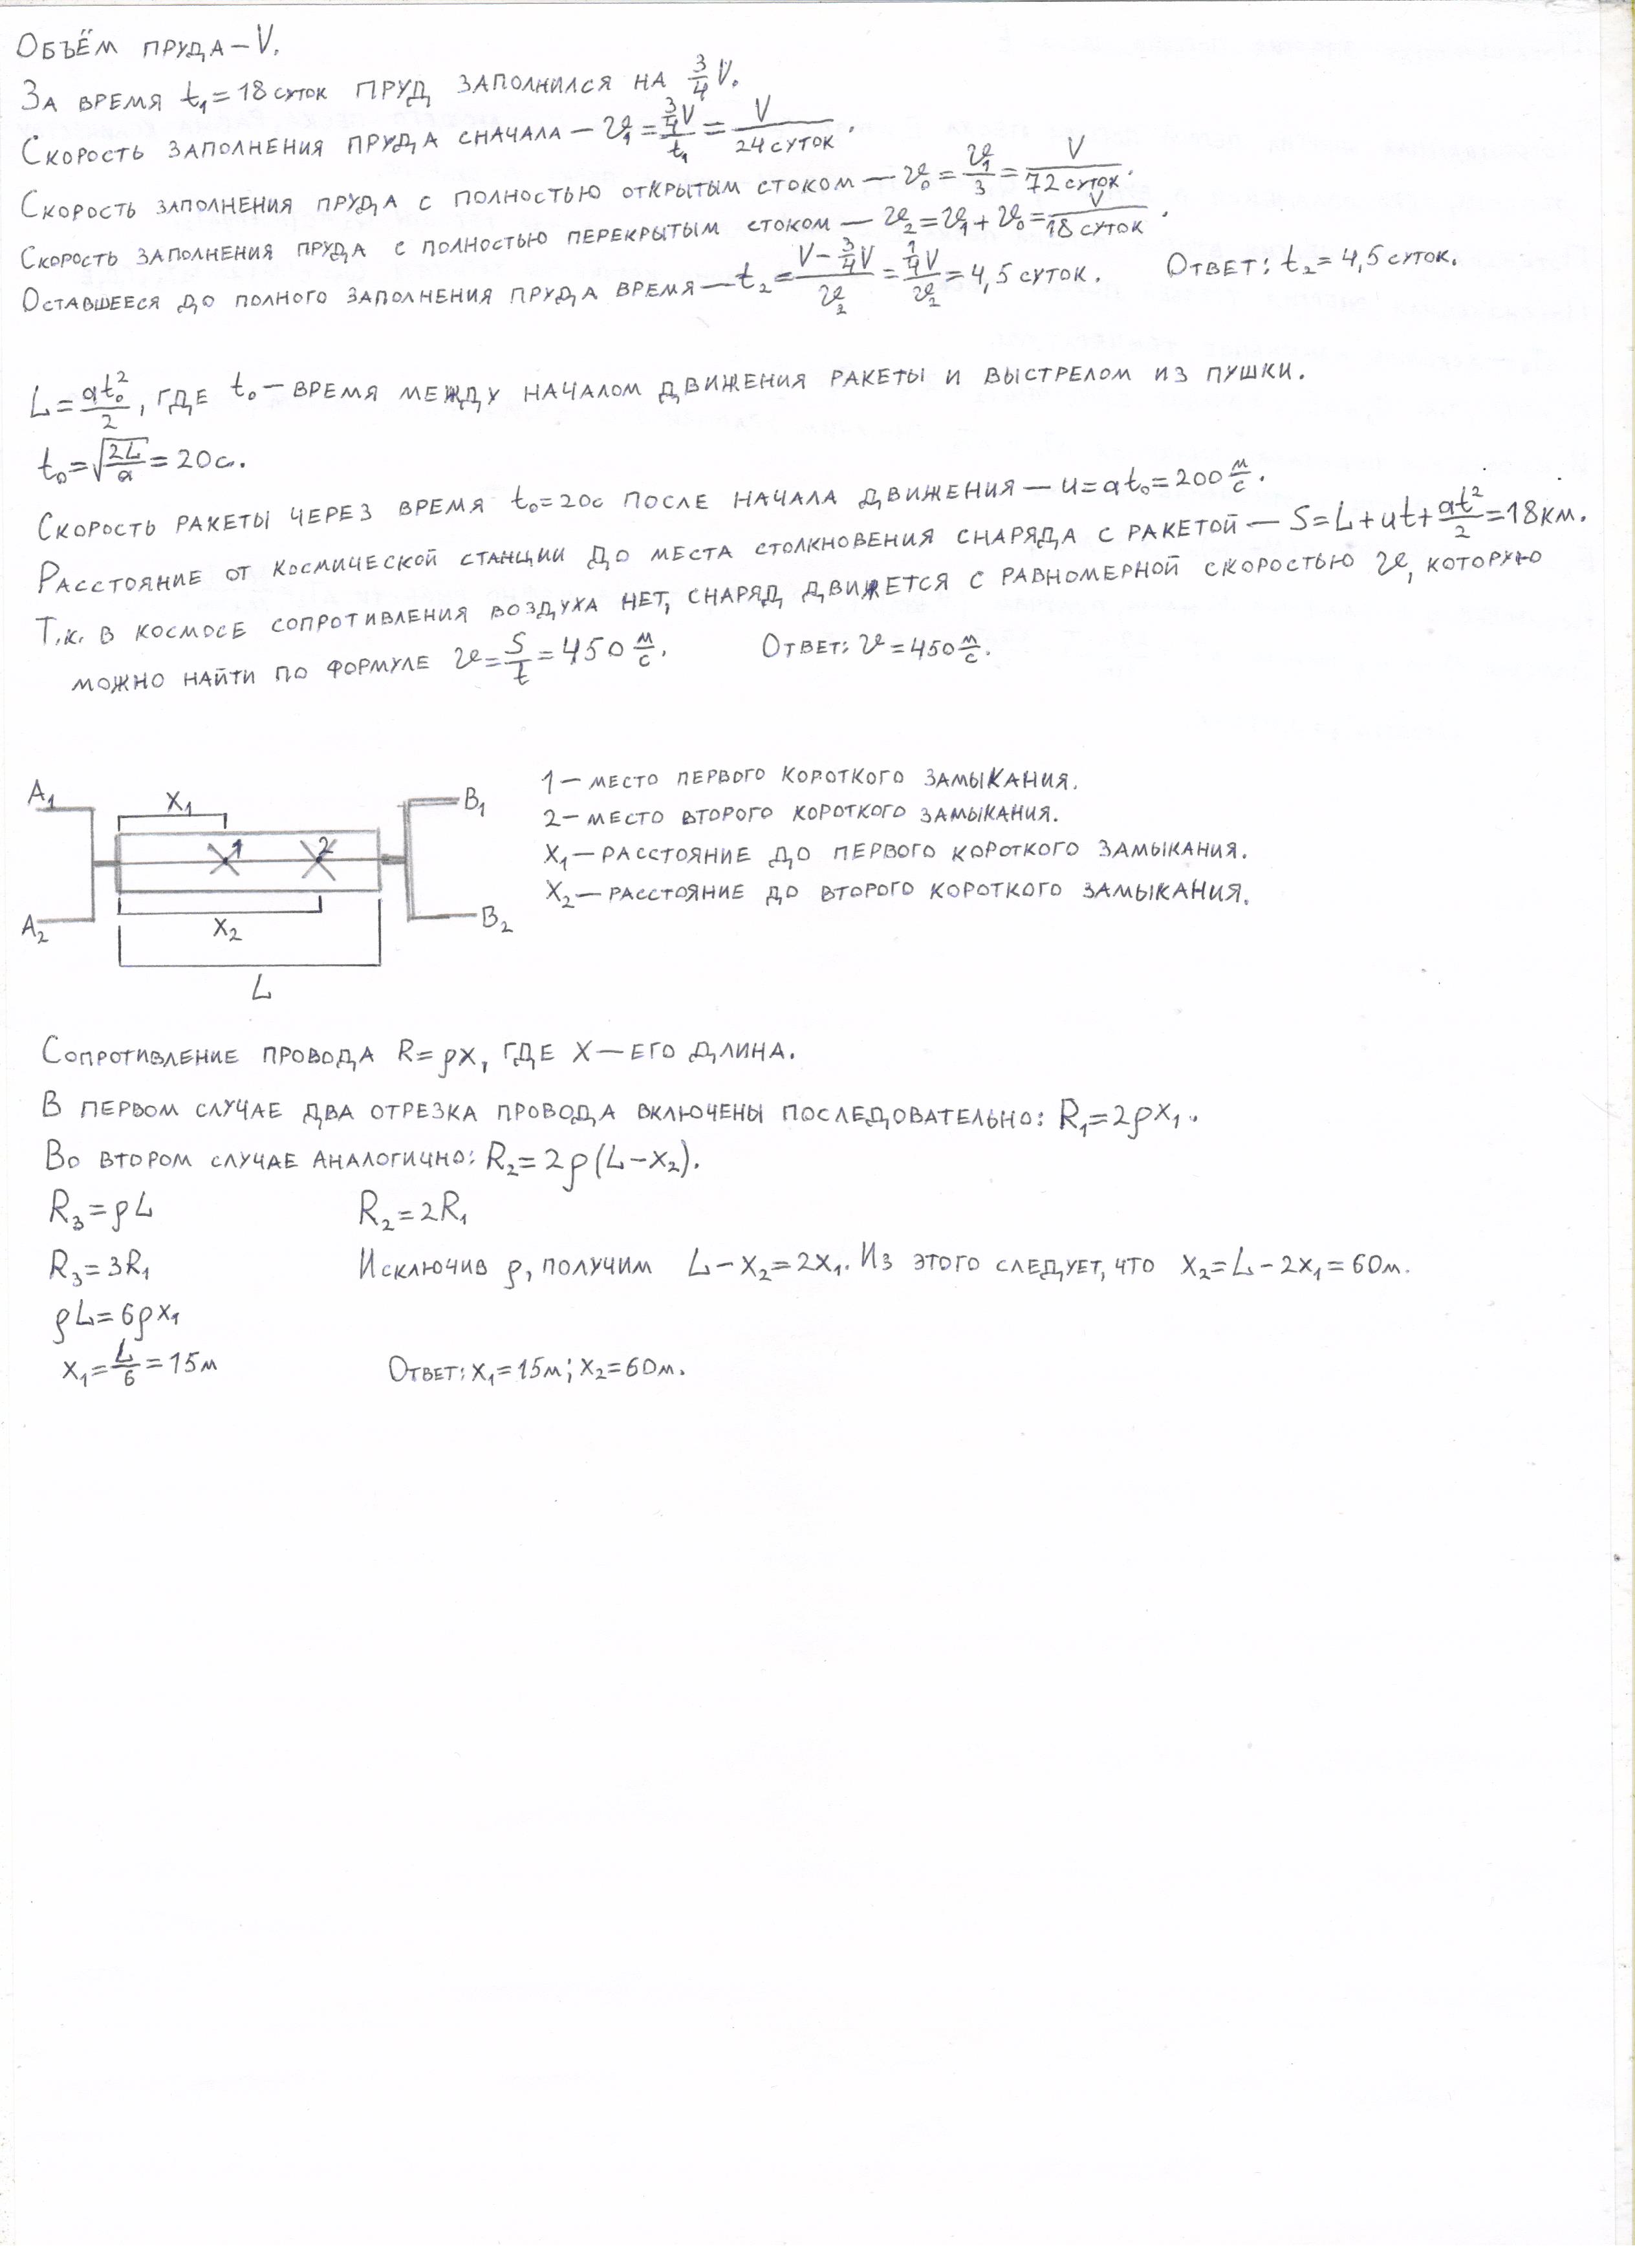 Объём пруда – V.
За время t₁ = 18 суток пруд заполнился на 3/4 V.
Скорость заполнения пруда сначала – v₁ = (3/4 V)/t₁ = V/(24 суток).
Скорость заполнения пруда с полностью открытым стоком – v₀ = v₁/3 = V/(72 суток).
Скорость заполнения пруда с полностью перекрытым стоком – v₂ = v₁ + v₀ = V/(18 суток).
Оставшееся до полного заполнения пруда время – t₂ = (V – 3/4 V)/v₂ = (1/4 V)/v₂ = 4,5 суток. Ответ: t₂ = 4,5 суток.
L = at₀²/2, где t₀ – время между началом движения ракеты и выстрелом из пушки.
t₀ = √(2L/a) = 20с.
Скорость ракеты через время t₀ = 20с после начала движения – u = at₀ = 200 м/с.
Расстояние от космической станции до места столкновения снаряда с ракетой – S = L + ut + at²/2 = 18км.
Т.к. в космосе сопротивления воздуха нет, снаряд движется с равномерной скоростью v, которую
можно найти по формуле v = S/t = 450 м/с. Ответ: v = 450 м/с.
A₁ X₁ B₁
1 2
A₂ X₂ B₂
L
1 – место первого короткого замыкания.
2 – место второго короткого замыкания.
X₁ – расстояние до первого короткого замыкания.
X₂ – расстояние до второго короткого замыкания.
Сопротивление провода R = ρx, где X – его длина.
В первом случае два отрезка провода включены последовательно: R₁ = 2ρx₁.
Во втором случае аналогично: R₂ = 2ρ(L – x₂).
R₃ = ρL R₂ = 2R₁
R₃ = 3R₁ Исключив ρ, получим L – x₂ = 2x₁. Из этого следует, что x₂ = L – 2x₁ = 60м.
ρL = 6ρx₁
x₁ = L/6 = 15м Ответ: x₁ = 15м; x₂ = 60м.